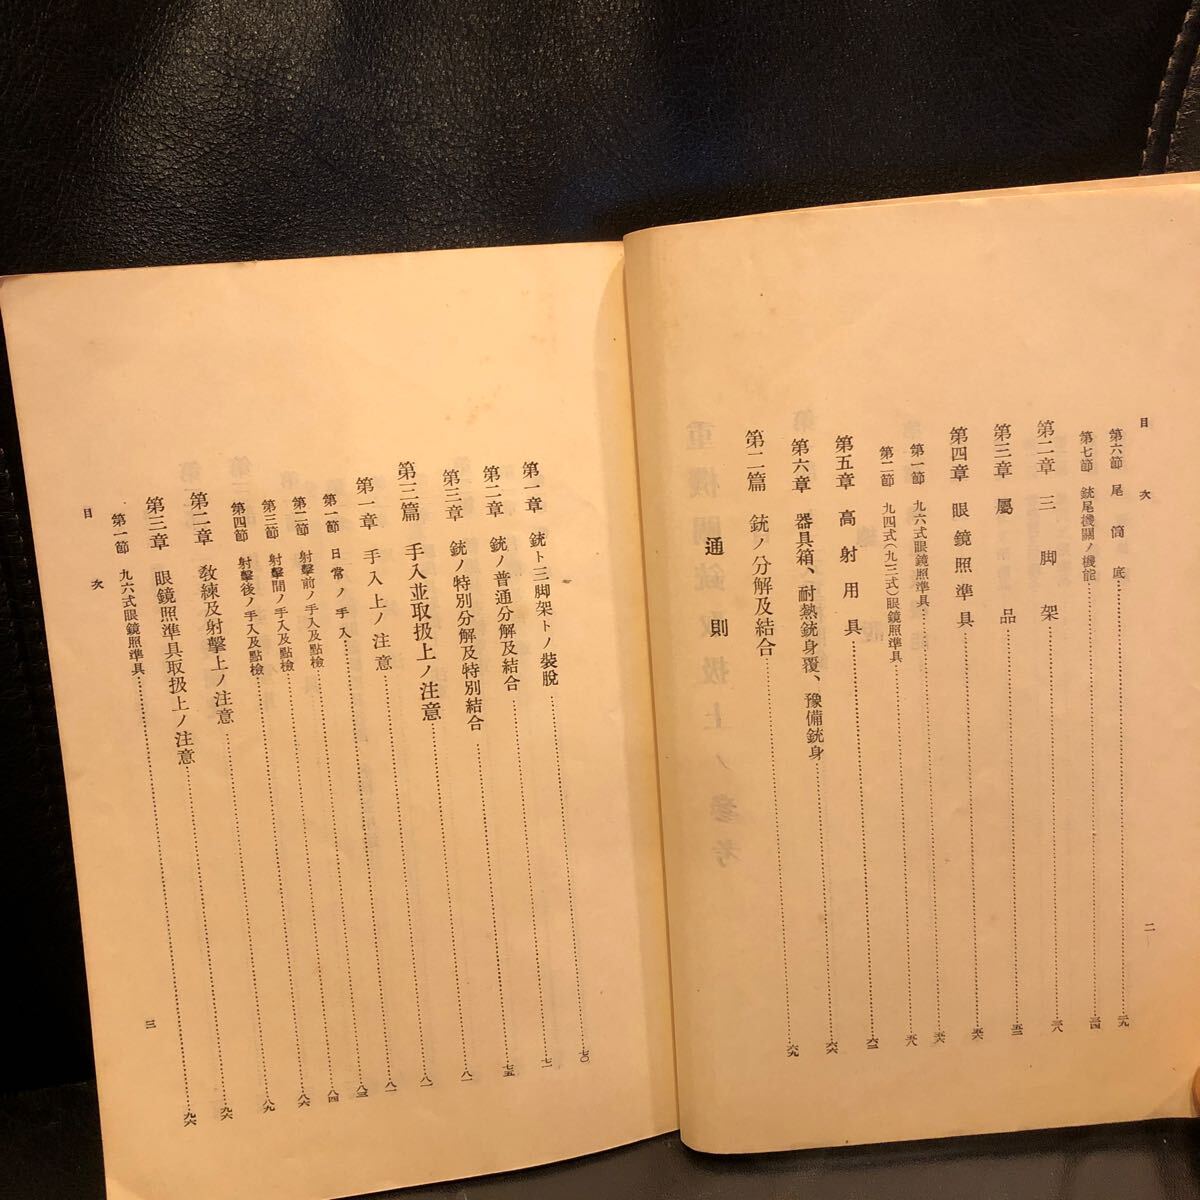 目次
第六節 尾筒底……二九
第七節 銃尾機關ノ機能……三四
第二章 三脚架……三八
第三章 屬品……五二
第四章 眼鏡照準具……五六
第一節 九六式眼鏡照準具……五六
第二節 九四式(九三式)眼鏡照準具……五八
第五章 高射用具……六二
第六章 器具箱、耐熱銃身覆、豫備銃身……六六
第二篇 銃ノ分解及結合……六九
通則
二
第一章 銃ト三脚架トノ裝脫……七〇
第二章 銃ノ普通分解及結合……七一
第三章 銃ノ特別分解及特別結合……七五
第三篇 手入並取扱上ノ注意……八一
第一章 手入上ノ注意……八一
第一節 日常ノ手入……八一
第二節 射擊前ノ手入及點檢……八三
第三節 射擊間ノ手入及點檢……八四
第四節 射擊後ノ手入及點檢……八六
第二章 敎練及射擊上ノ注意……八九
第三章 眼鏡照準具取扱上ノ注意……九六
第一節 九六式眼鏡照準具……九六
目次
三